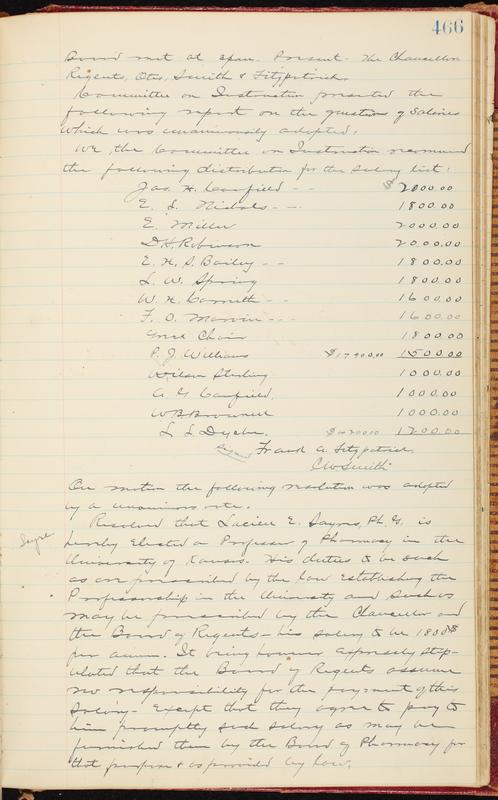 466
Board met at 8 p.m. Present. The Chancellor
Regents, Otis, Smith & Fitzpatrick.
Committee on Instruction presented the
following report on the question of Salaries
which was unanimously adopted.
We, the Committee on Instruction recommend
the following distribution for the Salary list:
Jas. H. Canfield - - $2000.00
E. L. Nichols - - 1800.00
E. Miller 2000.00
D. H. Robinson 2000.00
E. H. S. Bailey - - 1800.00
L. W. Spring 1800.00
W. H. Carruth - - 1600.00
F. O. Marvin - - 1600.00
Greek Chair 1800.00
P. J. Williams $17900.00 1500.00
Wilson Sterling 1000.00
A. G. Canfield, 1000.00
W. B. Brownell 1000.00
L. L. Dyche. $4200.00 1200.00
Signed Frank A. Fitzpatrick
C W Smith
On motion the following resolution was adopted
by a unanimous vote.
Resolved that Lucien E. Sayre, Ph. G. is
Sayre
hereby Elected a Professor of Pharmacy in the
University of Kansas. His duties to be such
as are prescribed by the law Establishing the
Professorship in the University and such as
may be prescribed by the Chancellor and
the Board of Regents - his salary to be 1800$
per annum. It being however expressly stip-
ulated that the Board of Regents assume
no responsibility for the payment of this
Salary - Except that they agree to pay to
him promptly such salary as may be
furnished them by the Board of Pharmacy for
that purpose & as provided by law.